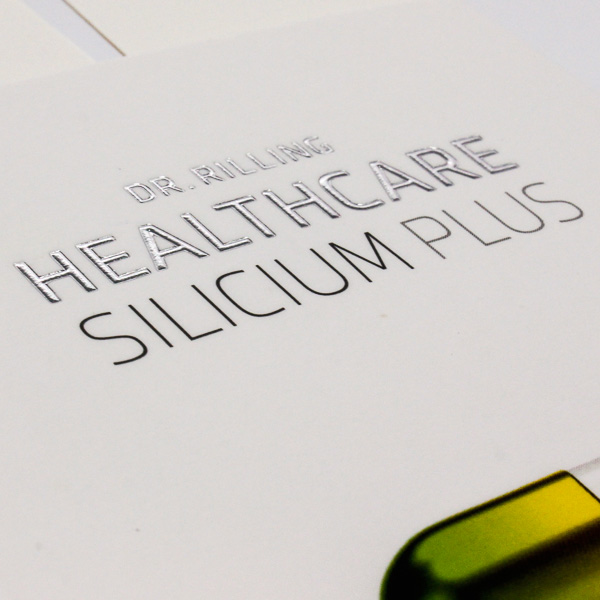 DR. RILLING
HEALTHCARE
SILICIUM PLUS